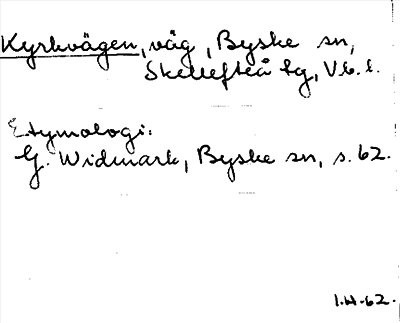 Kyrkvägen, väg, Byske sn,
Skellefteå tg, V.b.l.
Etymologi:
G. Widmark, Byske sn, s. 62.
I.H-62.